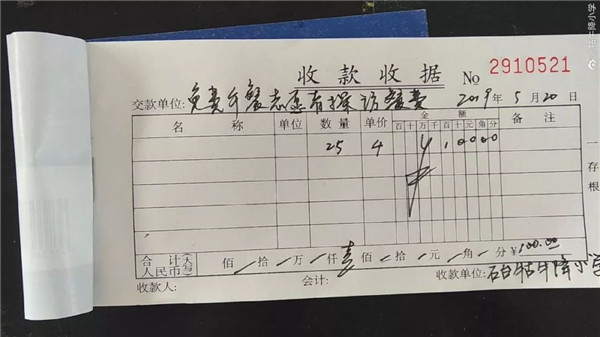 收款收据 No 2910521
交款单位: 免费午餐志愿者探访餐费 2019年5月20日
名称 单位 数量 单价 金额 备注
百十万千百十元角分
25 4 ¥10000
一存根
合计人民币(大写) 佰 拾 万 仟壹佰 拾 元 角 分 ¥100.00
收款人: 会计: 收款单位: